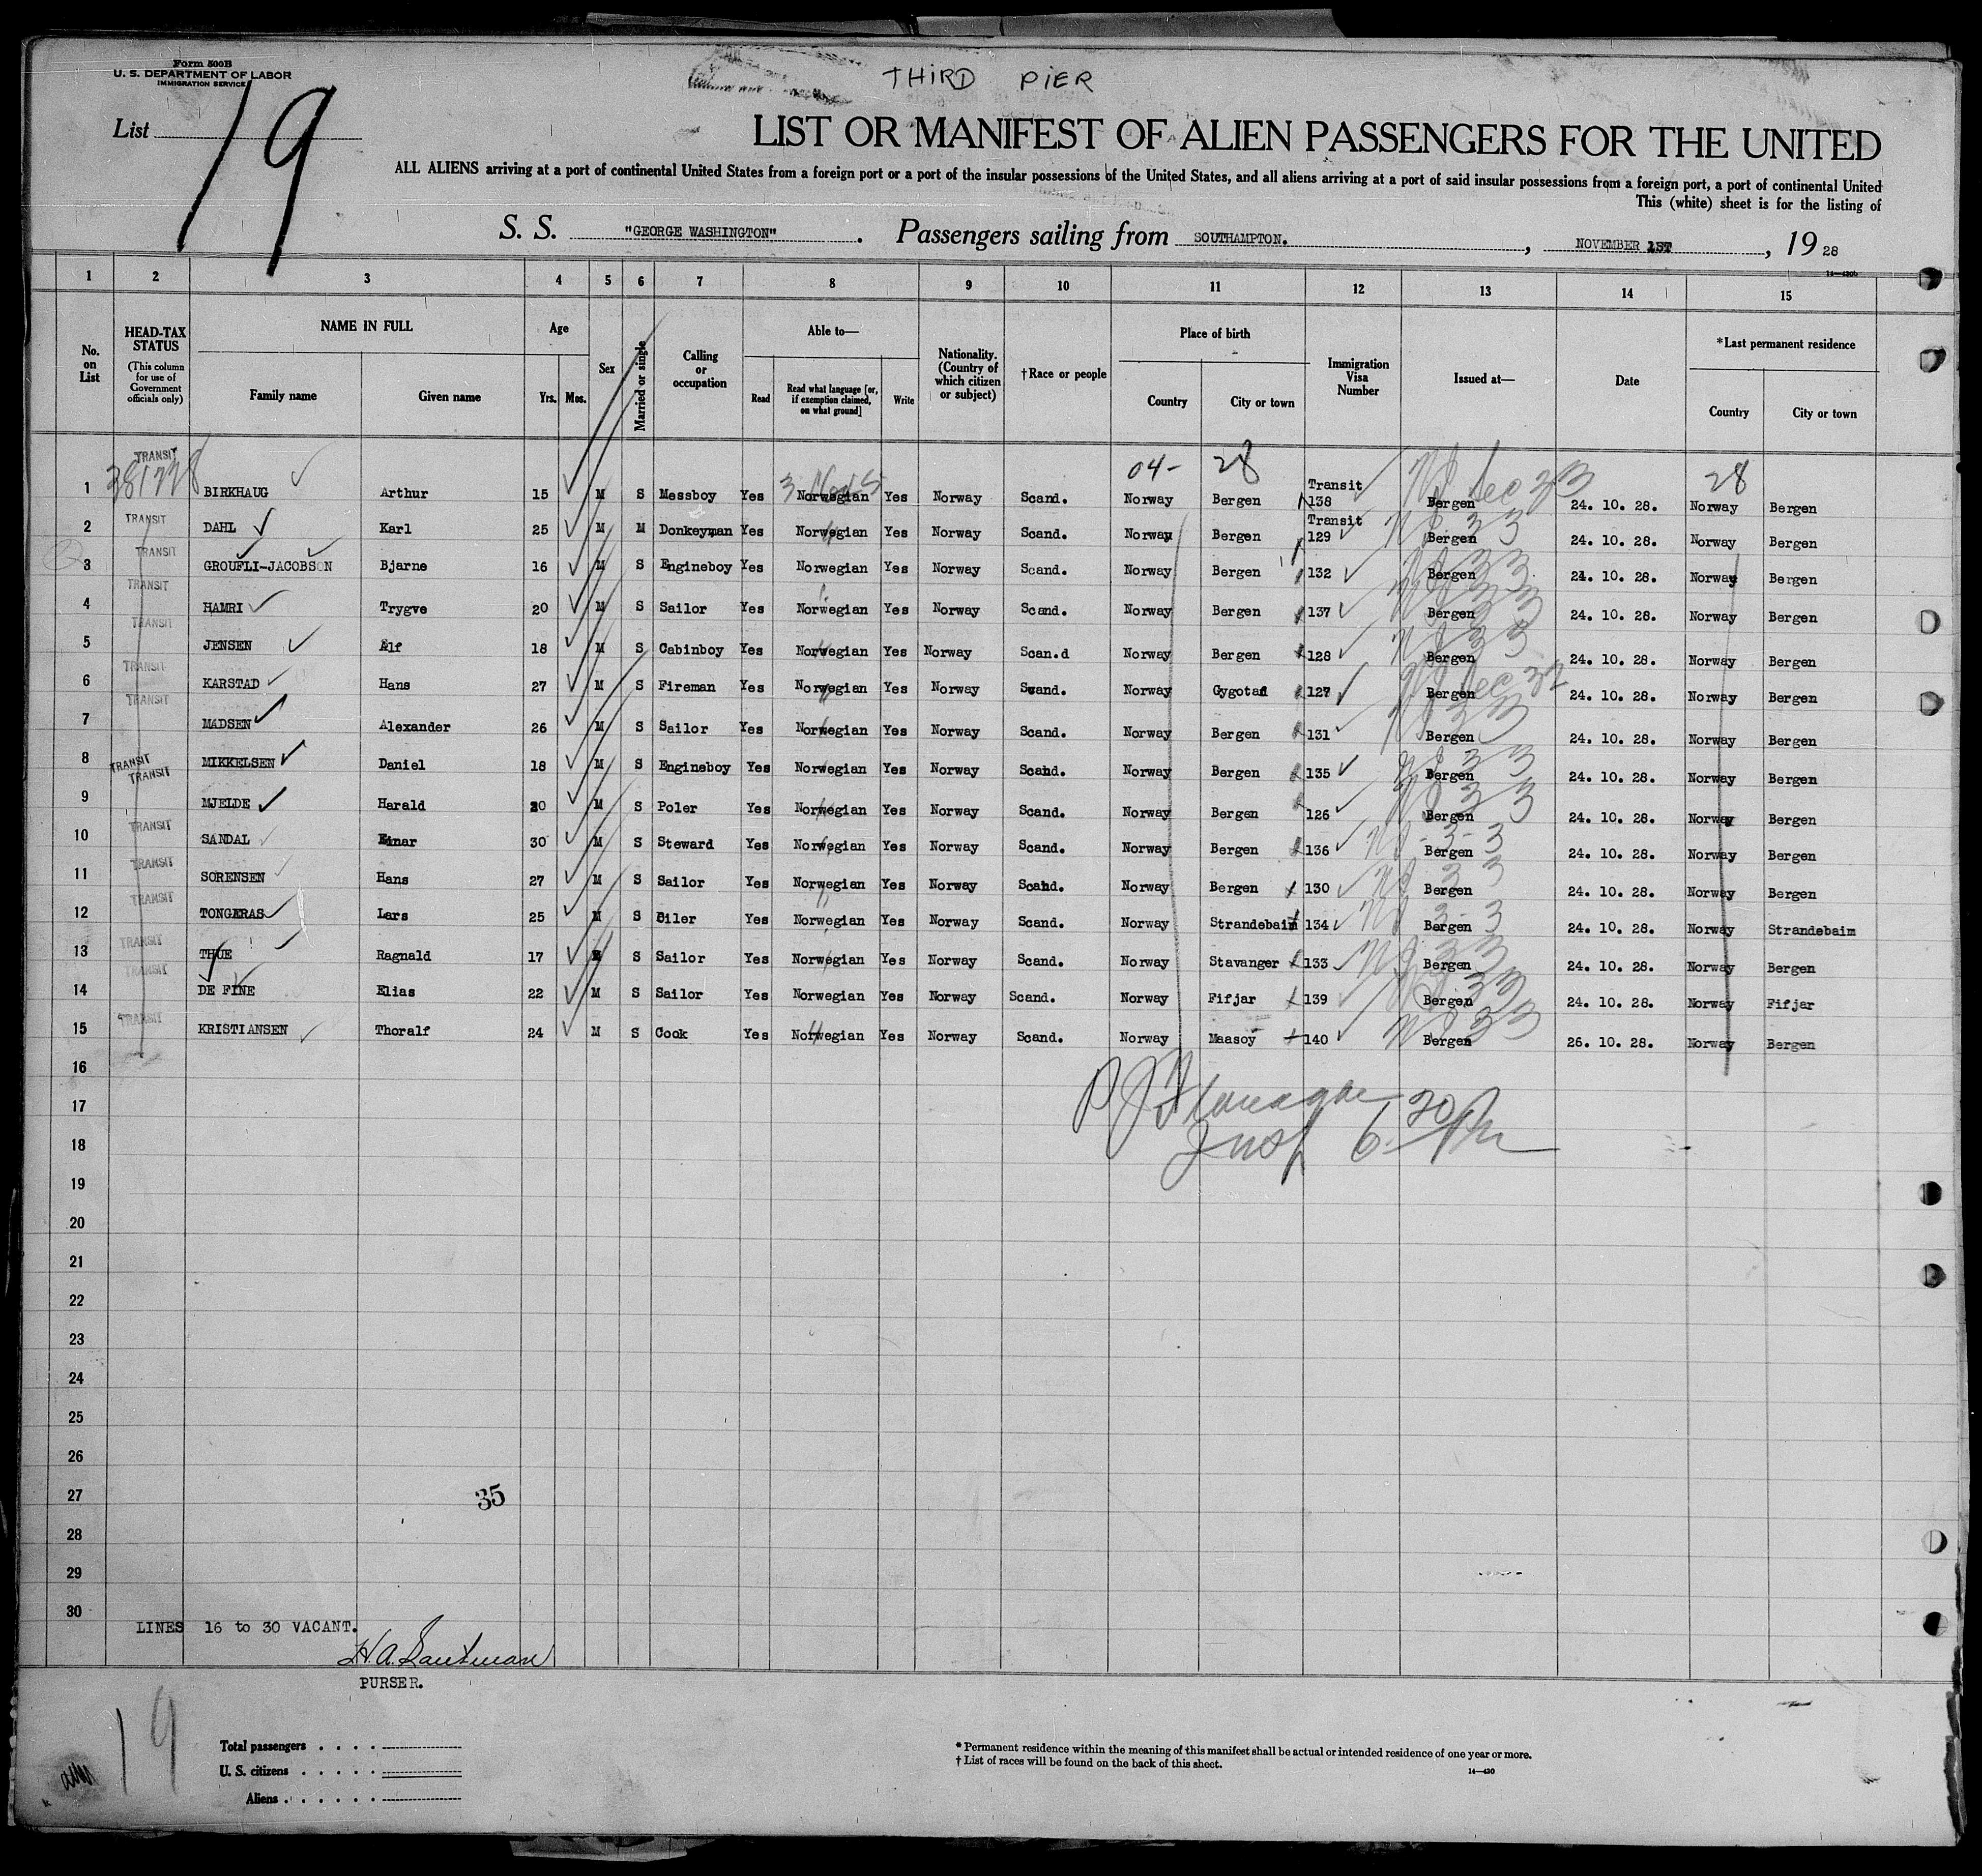 Form 500B
U. S. DEPARTMENT OF LABOR
IMMIGRATION SERVICE
THIRD PIER
List 19
LIST OR MANIFEST OF ALIEN PASSENGERS FOR THE UNITED
ALL ALIENS arriving at a port of continental United States from a foreign port or a port of the insular possessions of the United States, and all aliens arriving at a port of said insular possessions from a foreign port, a port of continental United
This (white) sheet is for the listing of
S. S. "GEORGE WASHINGTON". Passengers sailing from SOUTHAMPTON. , NOVEMBER 1ST , 19 28
14—430b
1 2 3 4 5 6 7 8 9 10 11 12 13 14 15
No. on List HEAD-TAX STATUS (This column for use of Government officials only) NAME IN FULL Family name Given name Age Yrs. Mos. Sex Married or single Calling or occupation Able to— Read Read what language [or, if exemption claimed, on what ground] Write Nationality. (Country of which citizen or subject) †Race or people Place of birth Country City or town Immigration Visa Number Issued at— Date *Last permanent residence Country City or town
04- 28 28
1 TRANSIT BIRKHAUG Arthur 15 M S Messboy Yes Norwegian Yes Norway Scand. Norway Bergen Transit 138 Bergen 24. 10. 28. Norway Bergen
2 TRANSIT DAHL Karl 25 M M Donkeyman Yes Norwegian Yes Norway Scand. Norway Bergen Transit 129 Bergen 24. 10. 28. Norway Bergen
3 TRANSIT GROUFLI-JACOBSON Bjarne 16 M S Engineboy Yes Norwegian Yes Norway Scand. Norway Bergen 132 Bergen 24. 10. 28. Norway Bergen
4 TRANSIT HAMRI Trygve 20 M S Sailor Yes Norwegian Yes Norway Scand. Norway Bergen 137 Bergen 24. 10. 28. Norway Bergen
5 TRANSIT JENSEN Alf 18 M S Cabinboy Yes Norwegian Yes Norway Scan.d Norway Bergen 128 Bergen 24. 10. 28. Norway Bergen
6 TRANSIT KARSTAD Hans 27 M S Fireman Yes Norwegian Yes Norway Scand. Norway 127 Bergen 24. 10. 28. Norway Bergen
7 TRANSIT MADSEN Alexander 26 M S Sailor Yes Norwegian Yes Norway Scand. Norway Bergen 131 Bergen 24. 10. 28. Norway Bergen
8 TRANSIT MIKKELSEN Daniel 18 M S Engineboy Yes Norwegian Yes Norway Scand. Norway Bergen 135 Bergen 24. 10. 28. Norway Bergen
9 TRANSIT MJELDE Harald M S Poler Yes Norwegian Yes Norway Scand. Norway Bergen 126 Bergen 24. 10. 28. Norway Bergen
10 TRANSIT SANDAL Einar 30 M S Steward Yes Norwegian Yes Norway Scand. Norway Bergen 136 Bergen 24. 10. 28. Norway Bergen
11 TRANSIT SORENSEN Hans 27 M S Sailor Yes Norwegian Yes Norway Scand. Norway Bergen 130 Bergen 24. 10. 28. Norway Bergen
12 TRANSIT TONGERAS Lars 25 M S Oiler Yes Norwegian Yes Norway Scand. Norway Strandebaim 134 Bergen 24. 10. 28. Norway Strandebaim
13 TRANSIT THUE Ragnald 17 M S Sailor Yes Norwegian Yes Norway Scand. Norway Stavanger 133 Bergen 24. 10. 28. Norway Bergen
14 TRANSIT DE FINE Elias 22 M S Sailor Yes Norwegian Yes Norway Scand. Norway Fifjar 139 Bergen 24. 10. 28. Norway Fifjar
15 TRANSIT KRISTIANSEN Thoralf 24 M S Cook Yes Norwegian Yes Norway Scand. Norway Maasoy 140 Bergen 26. 10. 28. Norway Bergen
16
17
18
19
20
21
22
23
24
25
26
27
35
28
29
30
LINES 16 to 30 VACANT.
PURSER.
19
Total passengers . . . .
U. S. citizens . . . . .
Aliens . . . . . .
* Permanent residence within the meaning of this manifest shall be actual or intended residence of one year or more.
† List of races will be found on the back of this sheet.
14—430